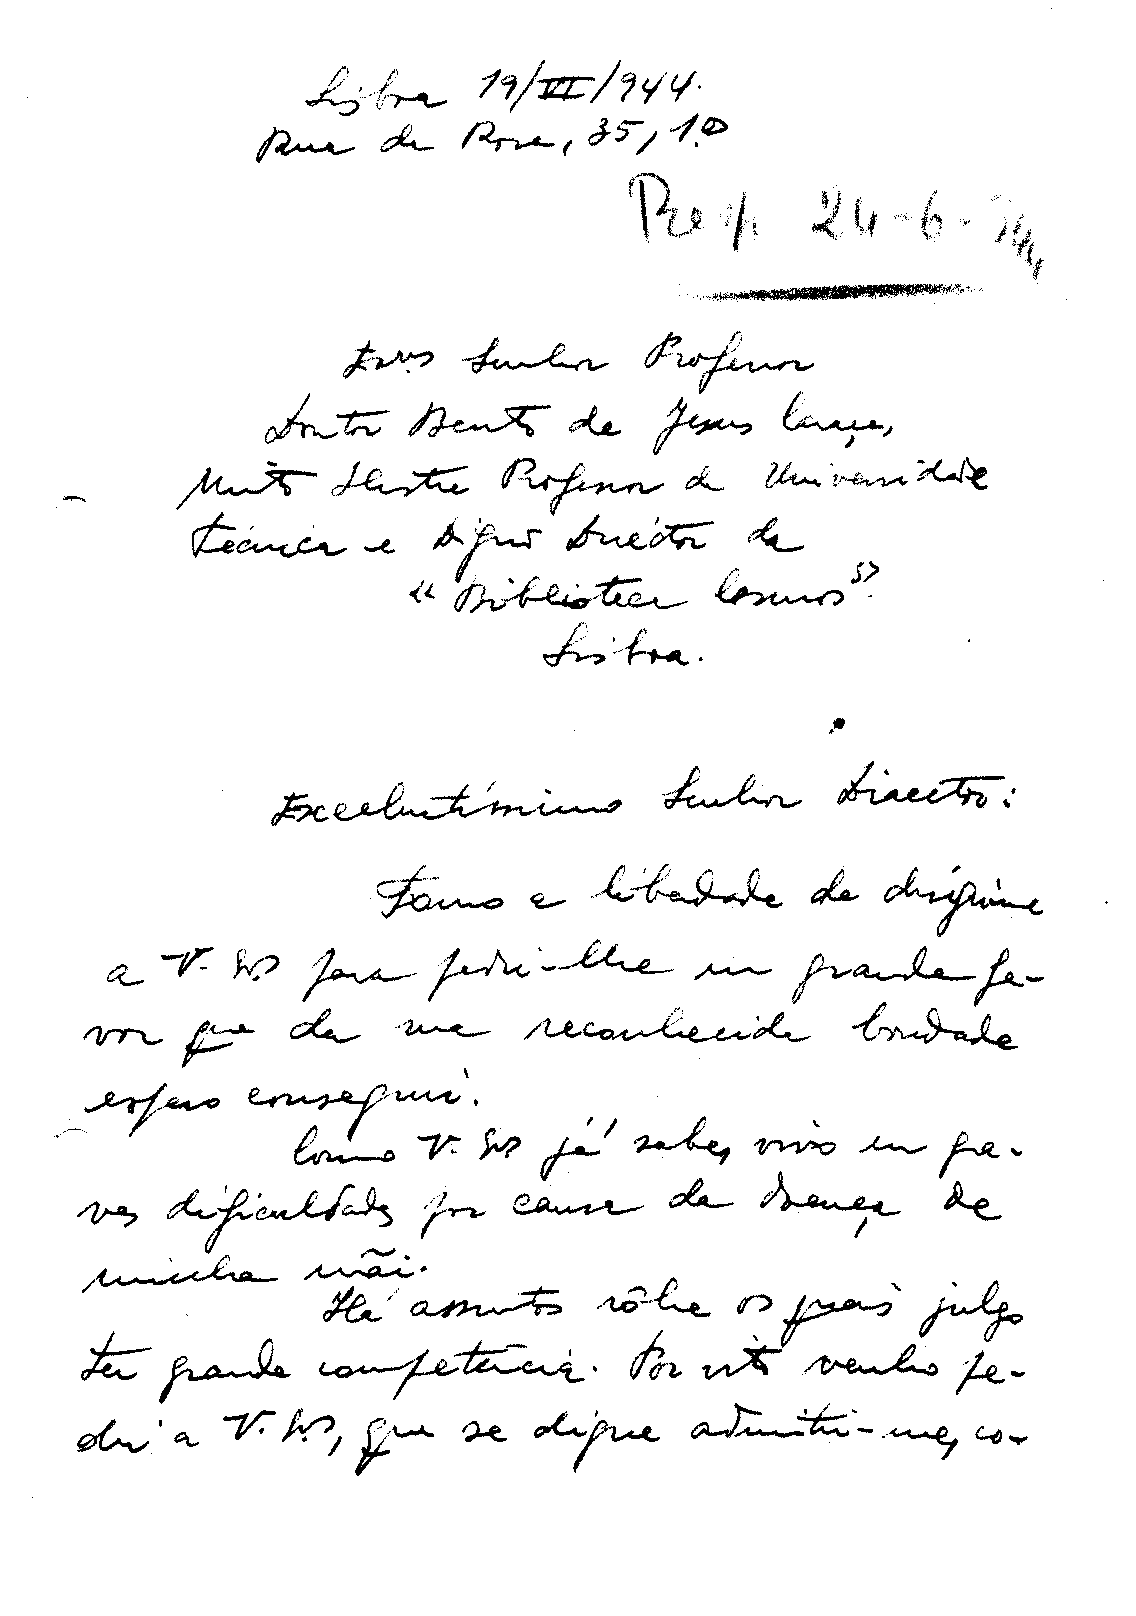 Lisboa 19/VI/944.
Rua da Rosa, 35, 1.º
Resp. 24-6-944
Exmº Senhor Professor
Doutor Bento de Jesus Caraça,
Muito Ilustre Professor da Universidade
Técnica e Digno Director da
"Biblioteca Cosmos".
Lisboa.
Excelentíssimo Senhor Director:
Tomo a liberdade de dirigir-me
a V. Exª para pedir-lhe um grande fa-
vor que da sua reconhecida bondade
espero conseguir.
Como V. Exª já sabe, vivo em gra-
ves dificuldades por causa da doença de
minha mãi.
Há assuntos sôbre os quais julgo
ter grande competência. Por isto venho pe-
dir a V. Exª, que se digne admitir-me, co-